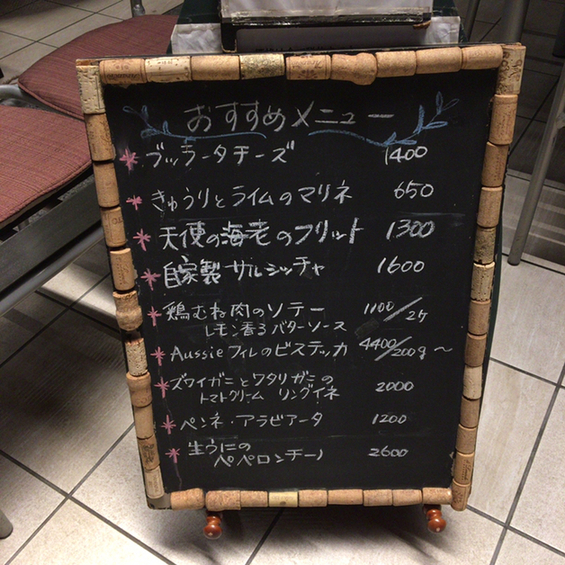 おすすめメニュー
ブッラータチーズ 1400
きゅうりとライムのマリネ 650
天使の海老のフリット 1300
自家製サルシッチャ 1600
鶏むね肉のソテー 1100/2ケ
レモン香るバターソース
Aussieフィレのビステッカ 4400/200g〜
ズワイガニとワタリガニの
トマトクリーム リングイネ 2000
ペンネ・アラビアータ 1200
生うにの
ペペロンチーノ 2600